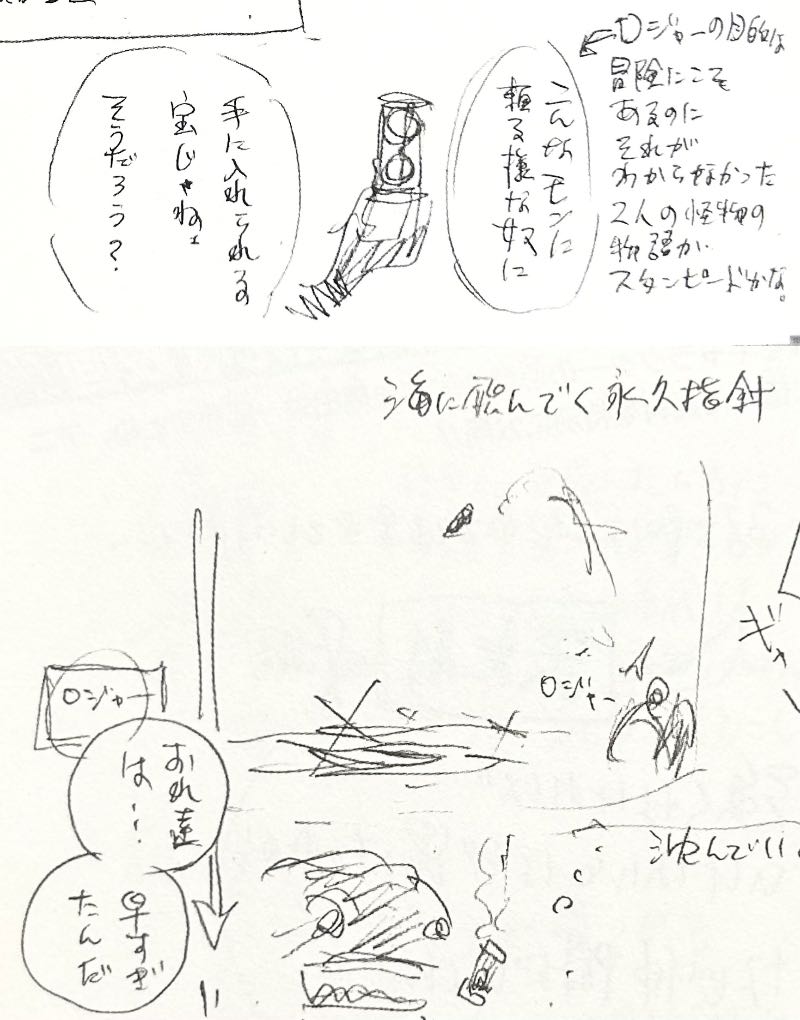 ロジャーの目的は
冒険にこそ
あるのに
それが
わからなかった
2人の怪物の
物語が
スタンピードかな。
こんなモンに
頼る様な奴に
手に入れられる
宝じゃねェ
そうだろう?
海に飛んでく永久指針
ギャ
ロジャー
ロジャー
おれ達
は…
早すぎ
たんだ
沈んでい